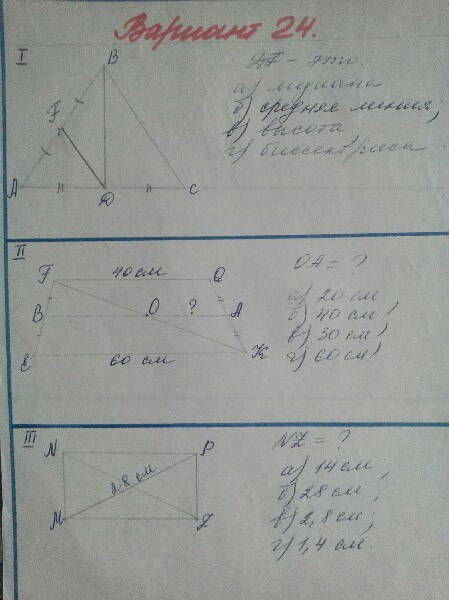 Вариант 24.
I
B
F
A
D
C
DF - это:
а) медиана
б) средняя линия;
в) высота
г) биссектриса
II
F 40 см Q
B O ? A
E 60 см K
OA = ?
а) 20 см,
б) 40 см,
в) 30 см,
г) 60 см.
III
N P
28 см
M Z
NZ = ?
а) 14 см,
б) 28 см,
в) 2,8 см;
г) 1,4 см.